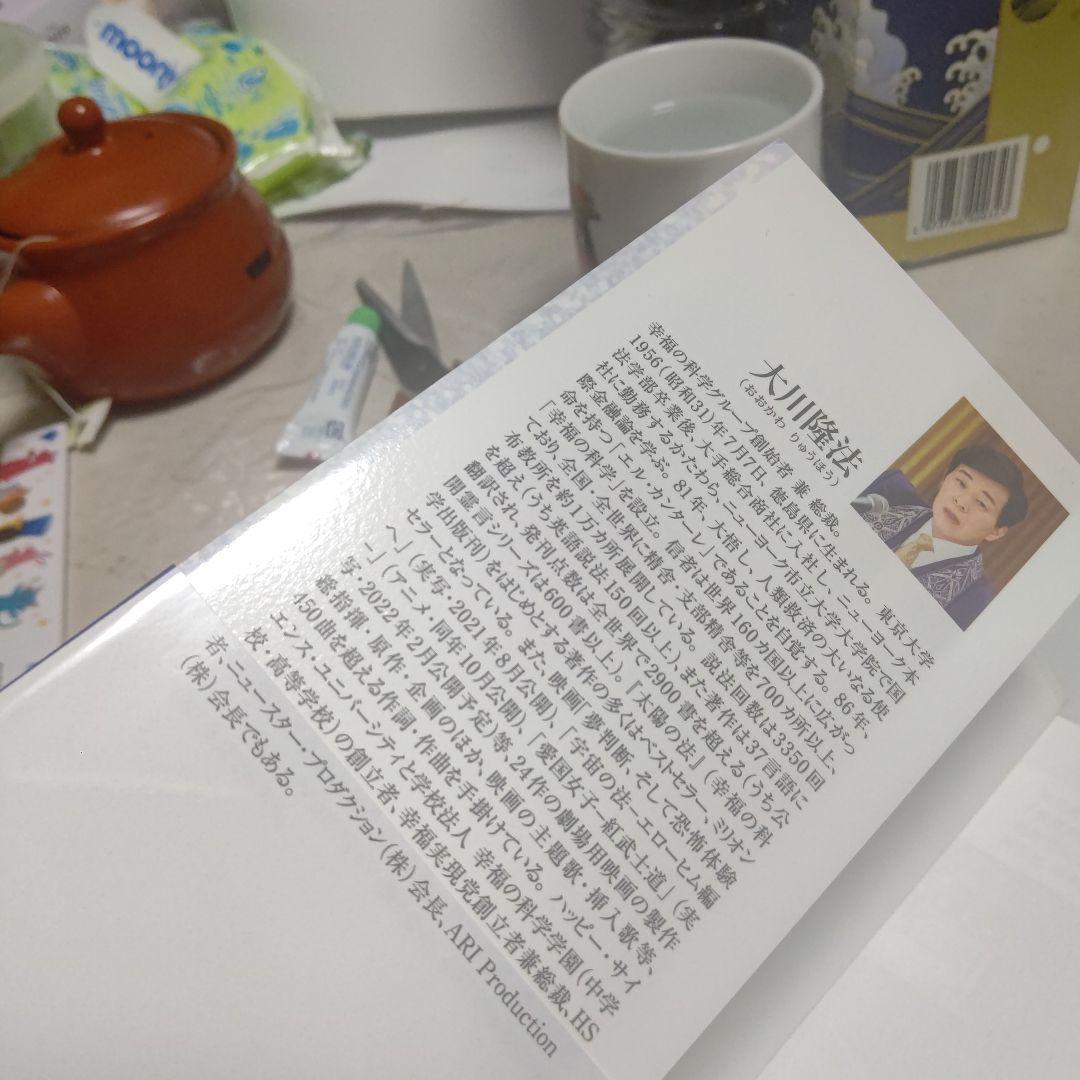 moony
大川隆法
(おおかわ りゅうほう)
幸福の科学グループ創始者 兼 総裁。
1956(昭和31)年7月7日、徳島県に生まれる。東京大学
法学部卒業後、大手総合商社に入社し、ニューヨーク本
社に勤務するかたわら、ニューヨーク市立大学大学院で国
際金融論を学ぶ。81年、大悟し、人類救済の大いなる使
命を持つ「エル・カンターレ」であることを自覚する。86年、
「幸福の科学」を設立。信者は世界160カ国以上に広がっ
ており、全国・全世界に精舎・支部精舎等を700カ所以上、
布教所を約1万カ所展開している。説法回数は3350回
を超え(うち英語説法150回以上)、また著作は37言語に
翻訳され、発刊点数は全世界で2900書を超える(うち公
開霊言シリーズは600書以上)。『太陽の法』(幸福の科
学出版刊)をはじめとする著作の多くはベストセラー、ミリオン
セラーとなっている。また、映画「夢判断、そして恐怖体験
へ」(実写・2021年8月公開)、「宇宙の法―エローヒム編
―」(アニメ・同年10月公開)、「愛国女子―紅武士道」(実
写・2022年2月公開予定)等、24作の劇場用映画の製作
総指揮・原作・企画のほか、映画の主題歌・挿入歌等、
450曲を超える作詞・作曲を手掛けている。ハッピー・サイ
エンス・ユニバーシティと学校法人 幸福の科学学園(中学
校・高等学校)の創立者、幸福実現党創立者兼総裁、HS
(株)会長でもある。
者、ニュースター・プロダクション(株)会長、ARI Production